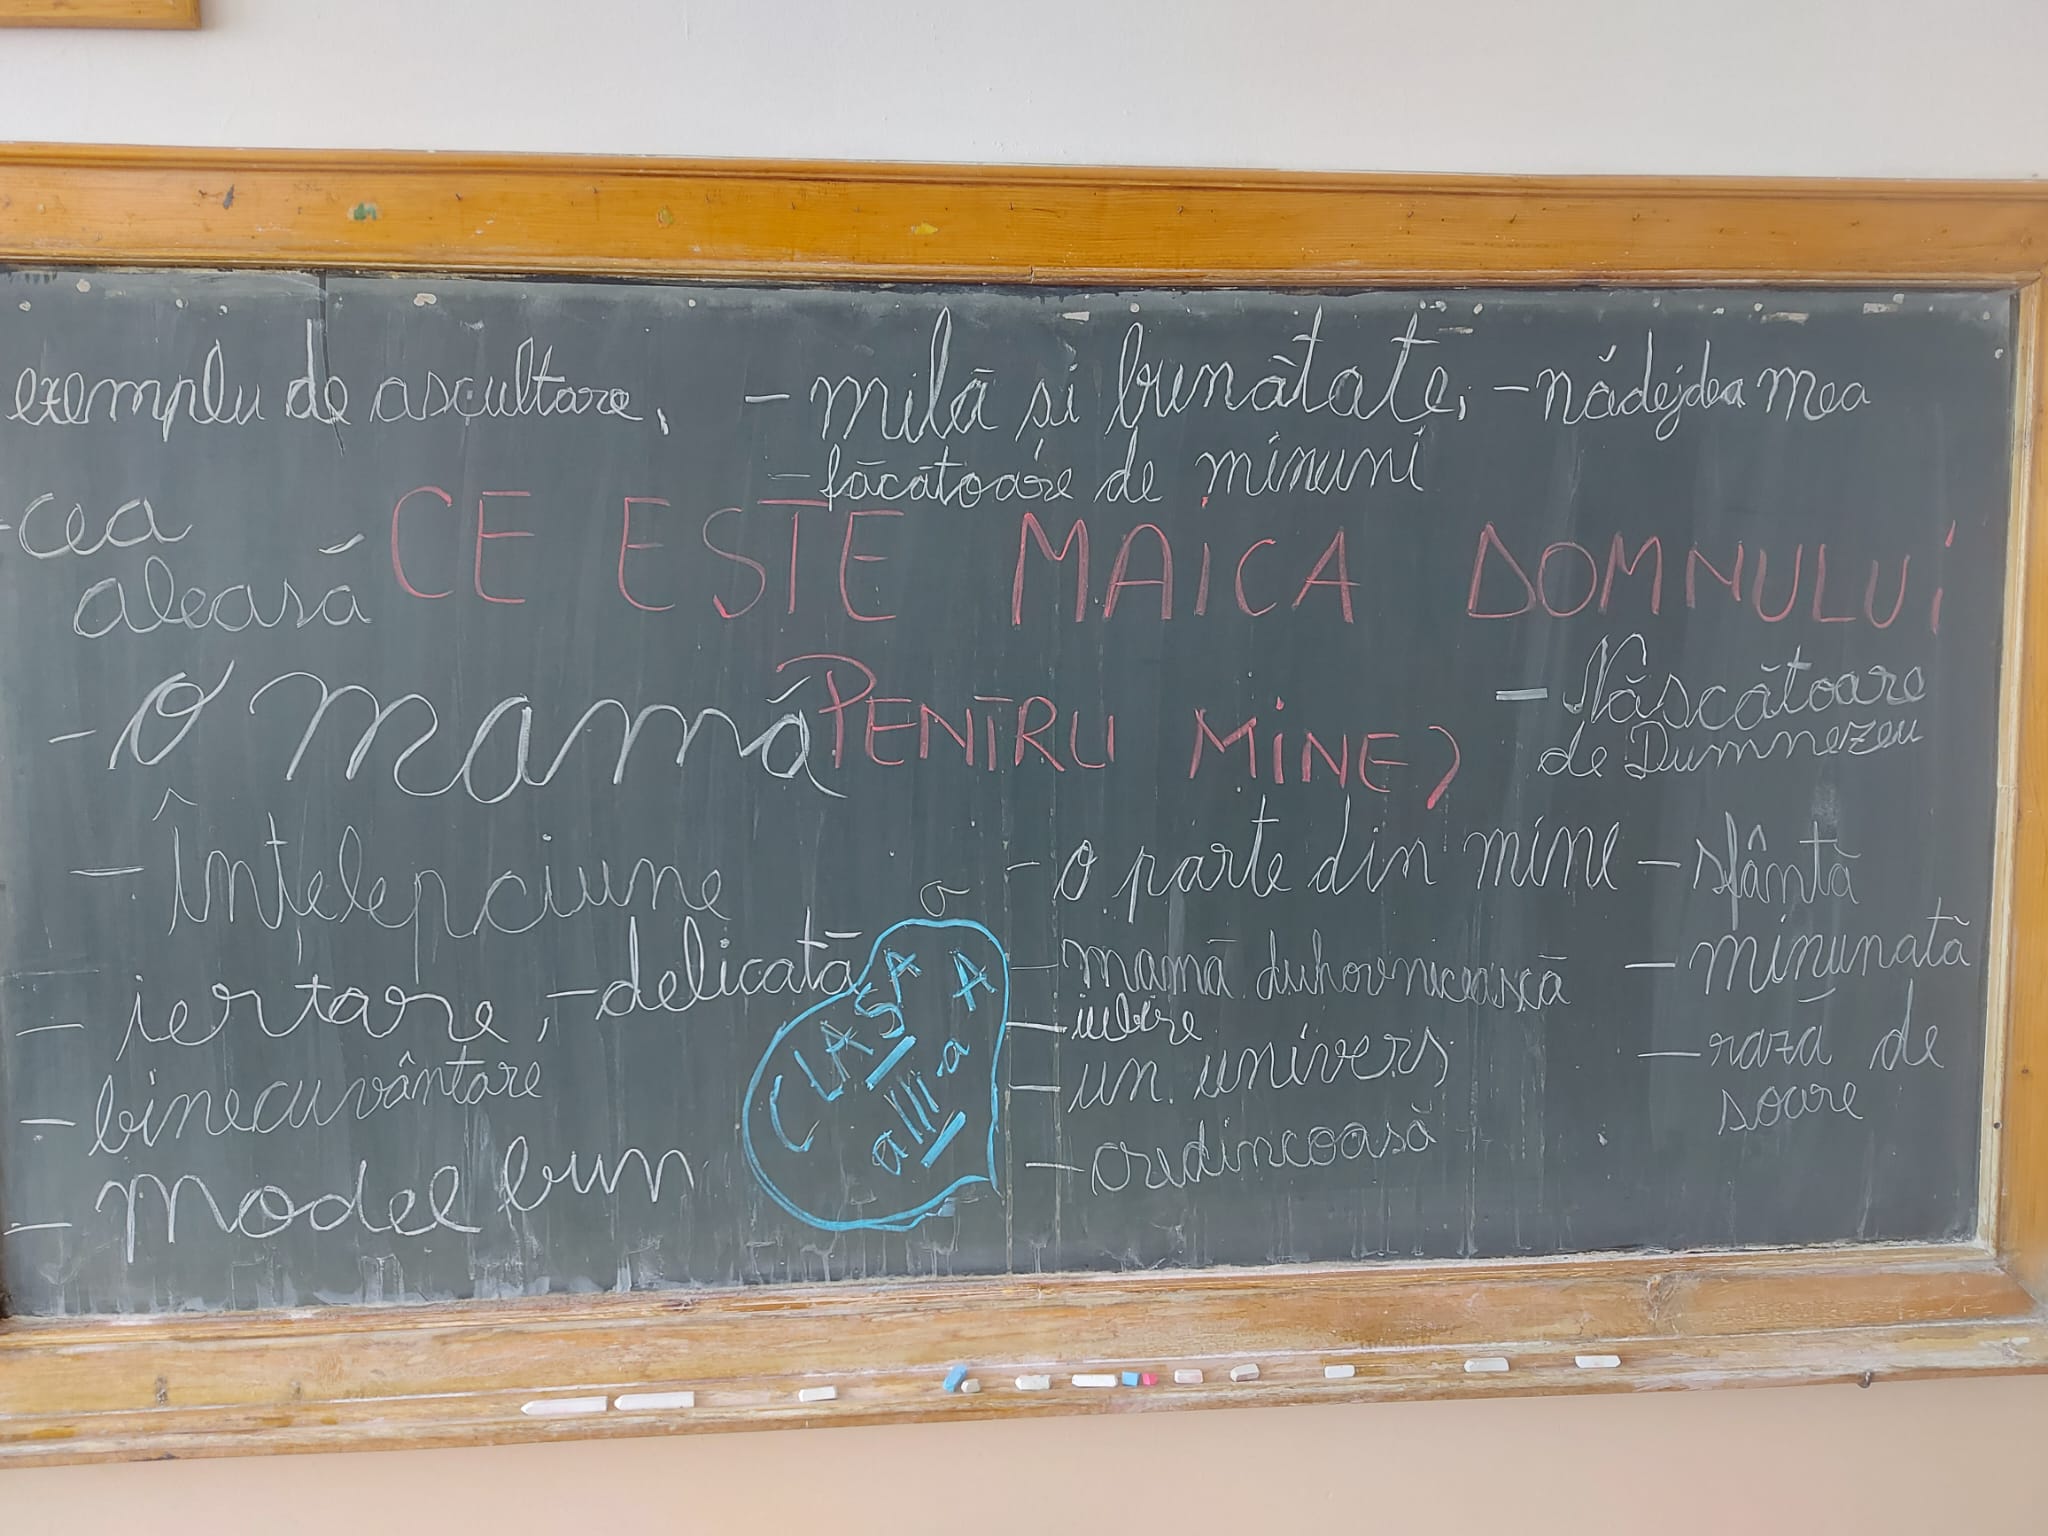 exemplu de ascultare,
- milă și bunătate,
- nădejdea mea
- făcătoare de minuni
- cea
aleasă
CE ESTE MAICA DOMNULUI
PENTRU MINE?
- o mamă
- Născătoare
de Dumnezeu
- Înțelepciune
- iertare, - delicată
- binecuvântare
- model bun
CLASA
a III a A
- o parte din mine
- mamă duhovnicească
- iubire
- un univers
- credincoasă
- sfântă
- minunată
- rază de
soare